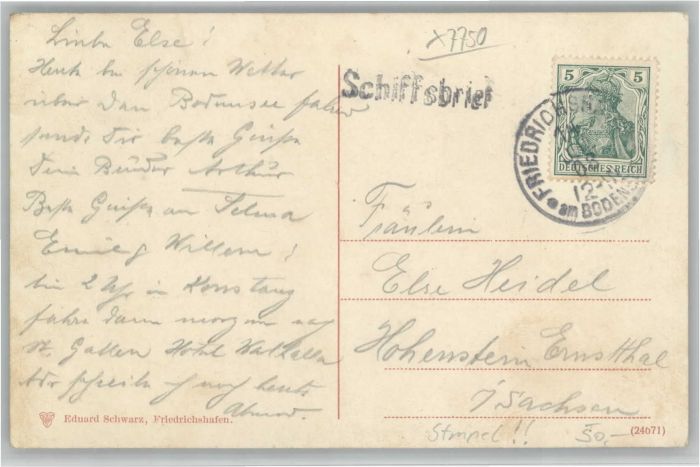 x7750
Liebe Else!
Heute bei schönem Wetter
über den Bodensee fahrend
sende dir beste Grüße
dein Bruder Arthur
Beste Grüße an Selma
Emil & Willem!
bin 2 Uhr in Konstanz
fahre dann morgen nach
St. Gallen Hotel Walhalla
Adr schreibe ich noch heute
Abend.
Schiffsbrief
5 5
DEUTSCHES REICH
FRIEDRICHSH
am BODENS
Fräulein
Else Heidel
Hohenstein Ernstthal
i/Sachsen
Eduard Schwarz, Friedrichshafen.
Stempel!!
50,—
(24671)